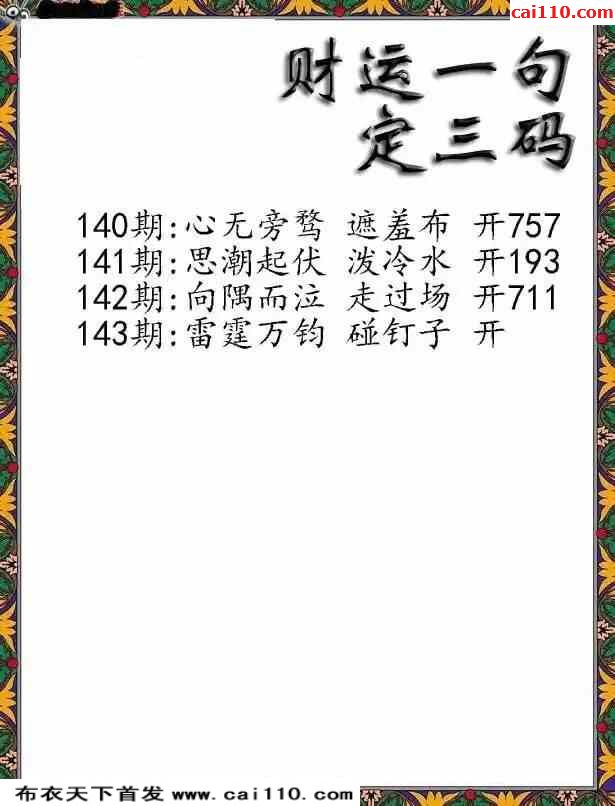 cai110.com
财运一句
定三码
140期:心无旁骛 遮羞布 开757
141期:思潮起伏 泼冷水 开193
142期:向隅而泣 走过场 开711
143期:雷霆万钧 碰钉子 开
布衣天下首发 www.cai110.com